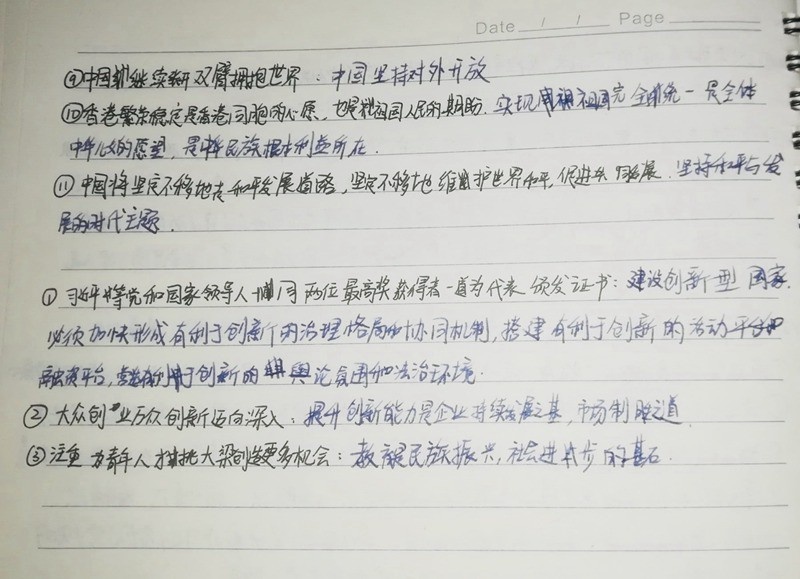 Date / / Page
⑨中国将继续张开双臂拥抱世界:中国坚持对外开放
⑩香港繁荣稳定是香港同胞的心愿,也是祖国人民的期盼.实现祖国完全统一是全体
中华儿女的愿望,是中华民族根本利益所在.
⑪中国将坚定不移地走和平发展道路,坚定不移地维护世界和平,促进共同发展.坚持和平与发
展的时代主题.
①习近平等党和国家领导人同两位最高奖获得者一道为代表颁发证书:建设创新型国家
必须加快形成有利于创新的治理格局和协同机制,搭建有利于创新的活动平台和
融资平台,营造有利于创新的舆论氛围和法治环境.
②大众创业万众创新迈向深入:提升创新能力是企业持续发展之基,市场制胜之道
③注重为青年人才挑大梁创造更多机会:教育是民族振兴,社会进步的基石.